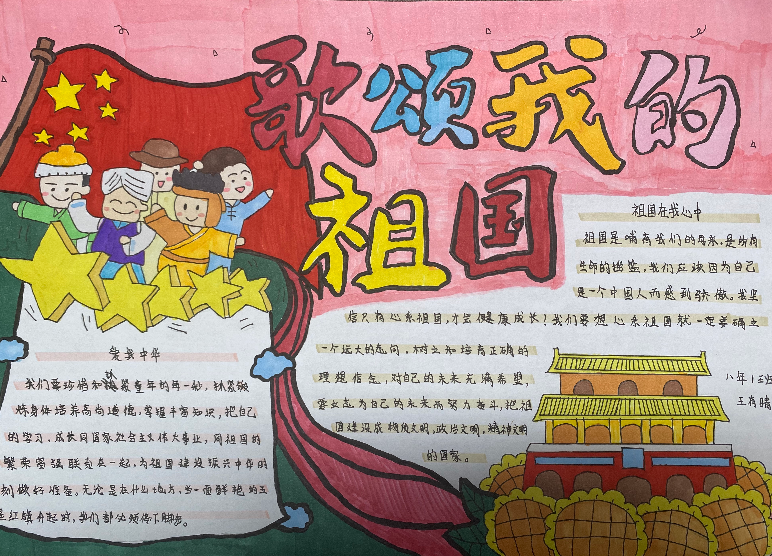 歌颂我的
祖国
祖国在我心中
祖国是哺育我们的母亲,是所有
生命的摇篮,我们应该因为自己
是一个中国人而感到骄傲。我坚
信只有心系祖国,才会健康成长?我们要想心系祖国就一定要确立
一个远大的志向,树立和培育正确的
理想信念,对自己的未来充满希望,
要立志为自己的未来而努力奋斗,把祖
国建设成物质文明,政治文明,精神文明
的国家。
爱我中华
我们要珍惜和 童年的每一秒,
炼身体培养高尚道德,掌握丰富知识,把自己
的学习、成长同国家社会主义伟大事业,同祖国的
繁荣富强联系在一起,为祖国建设振兴中华时
刻做好准备。无论是在什么地方,当一面鲜艳的五
星红旗升起时,我们都必须停下脚步。
八年1班
王